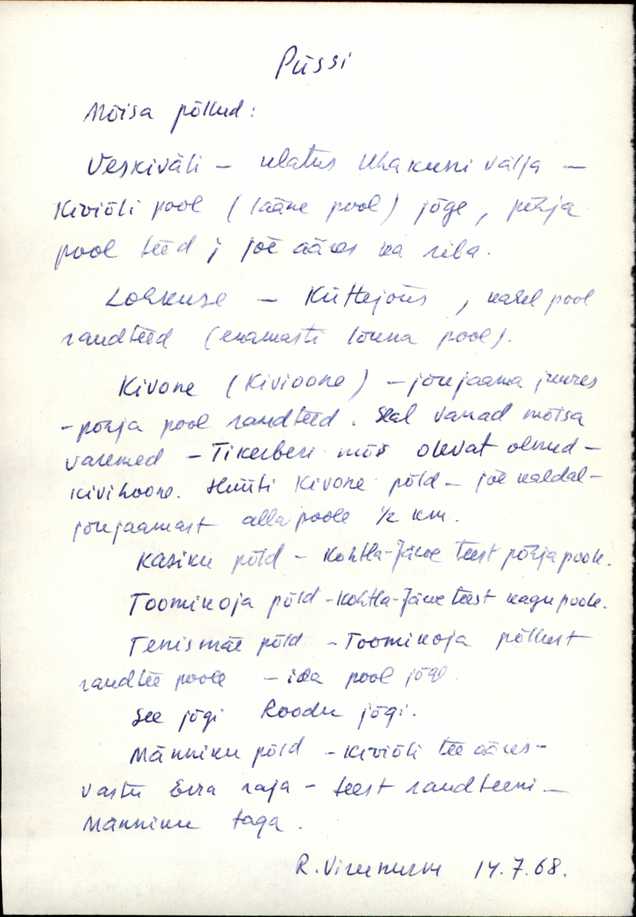 Püssi
Mõisa põllud:
Veskiväli – ulatus Uhakuni välja –
Kiviõli pool (lääne pool) jõge, põhja
pool teed; jõe ääres ka riba.
Lohkuse – Küttejõus, kahel pool
raudteed (enamasti lõuna pool).
Kivone (Kivioone) – jõujaama juures
– põhja pool raudteed. Seal vanad mõisa
varemed – Tikerberi mõis olevat olnud –
kivihoone. Hüüti Kivone põld – jõe kaldal –
jõujaamast alla poole 1/2 km.
Kasiku põld – Kohtla-Järve teest põhjapoole.
Toomikoja põld – Kohtla-Järve teest kagupoole.
Tenismäe põld – Toomikoja põllust
raudtee poole – ida pool jõge.
See jõgi Roodu jõgi.
Männiku põld – Kiviõli tee ääres –
vastu Erra raja – teest raudteeni –
Männiku taga.
R. Viremurm 14.7.68.